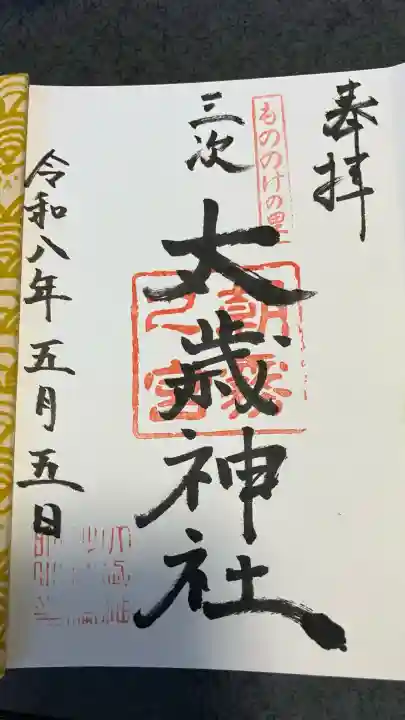 奉拝
もののけの里
三次
大歳神社
令和八年五月五日